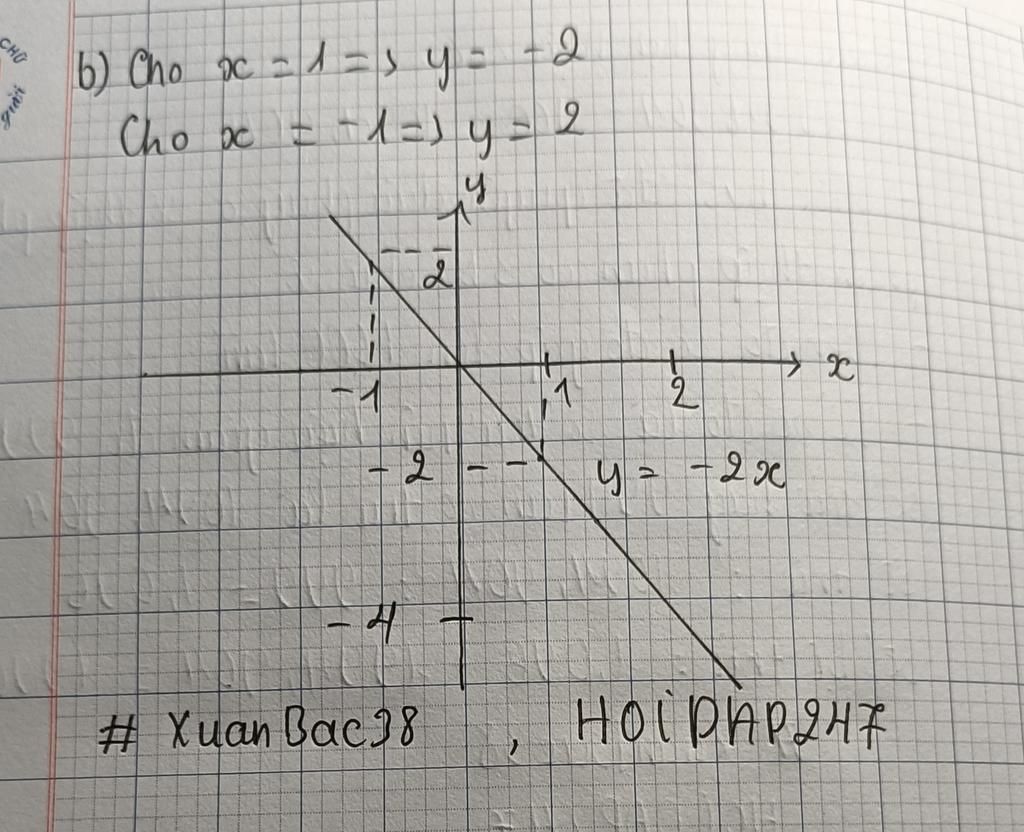 CHỮ
giải
b) Cho x = 1 => y = -2
Cho x = -1 => y = 2
y
2
x
-1
1
2
-2
y = -2x
-4
# XuanBac38 , HOiDAP247